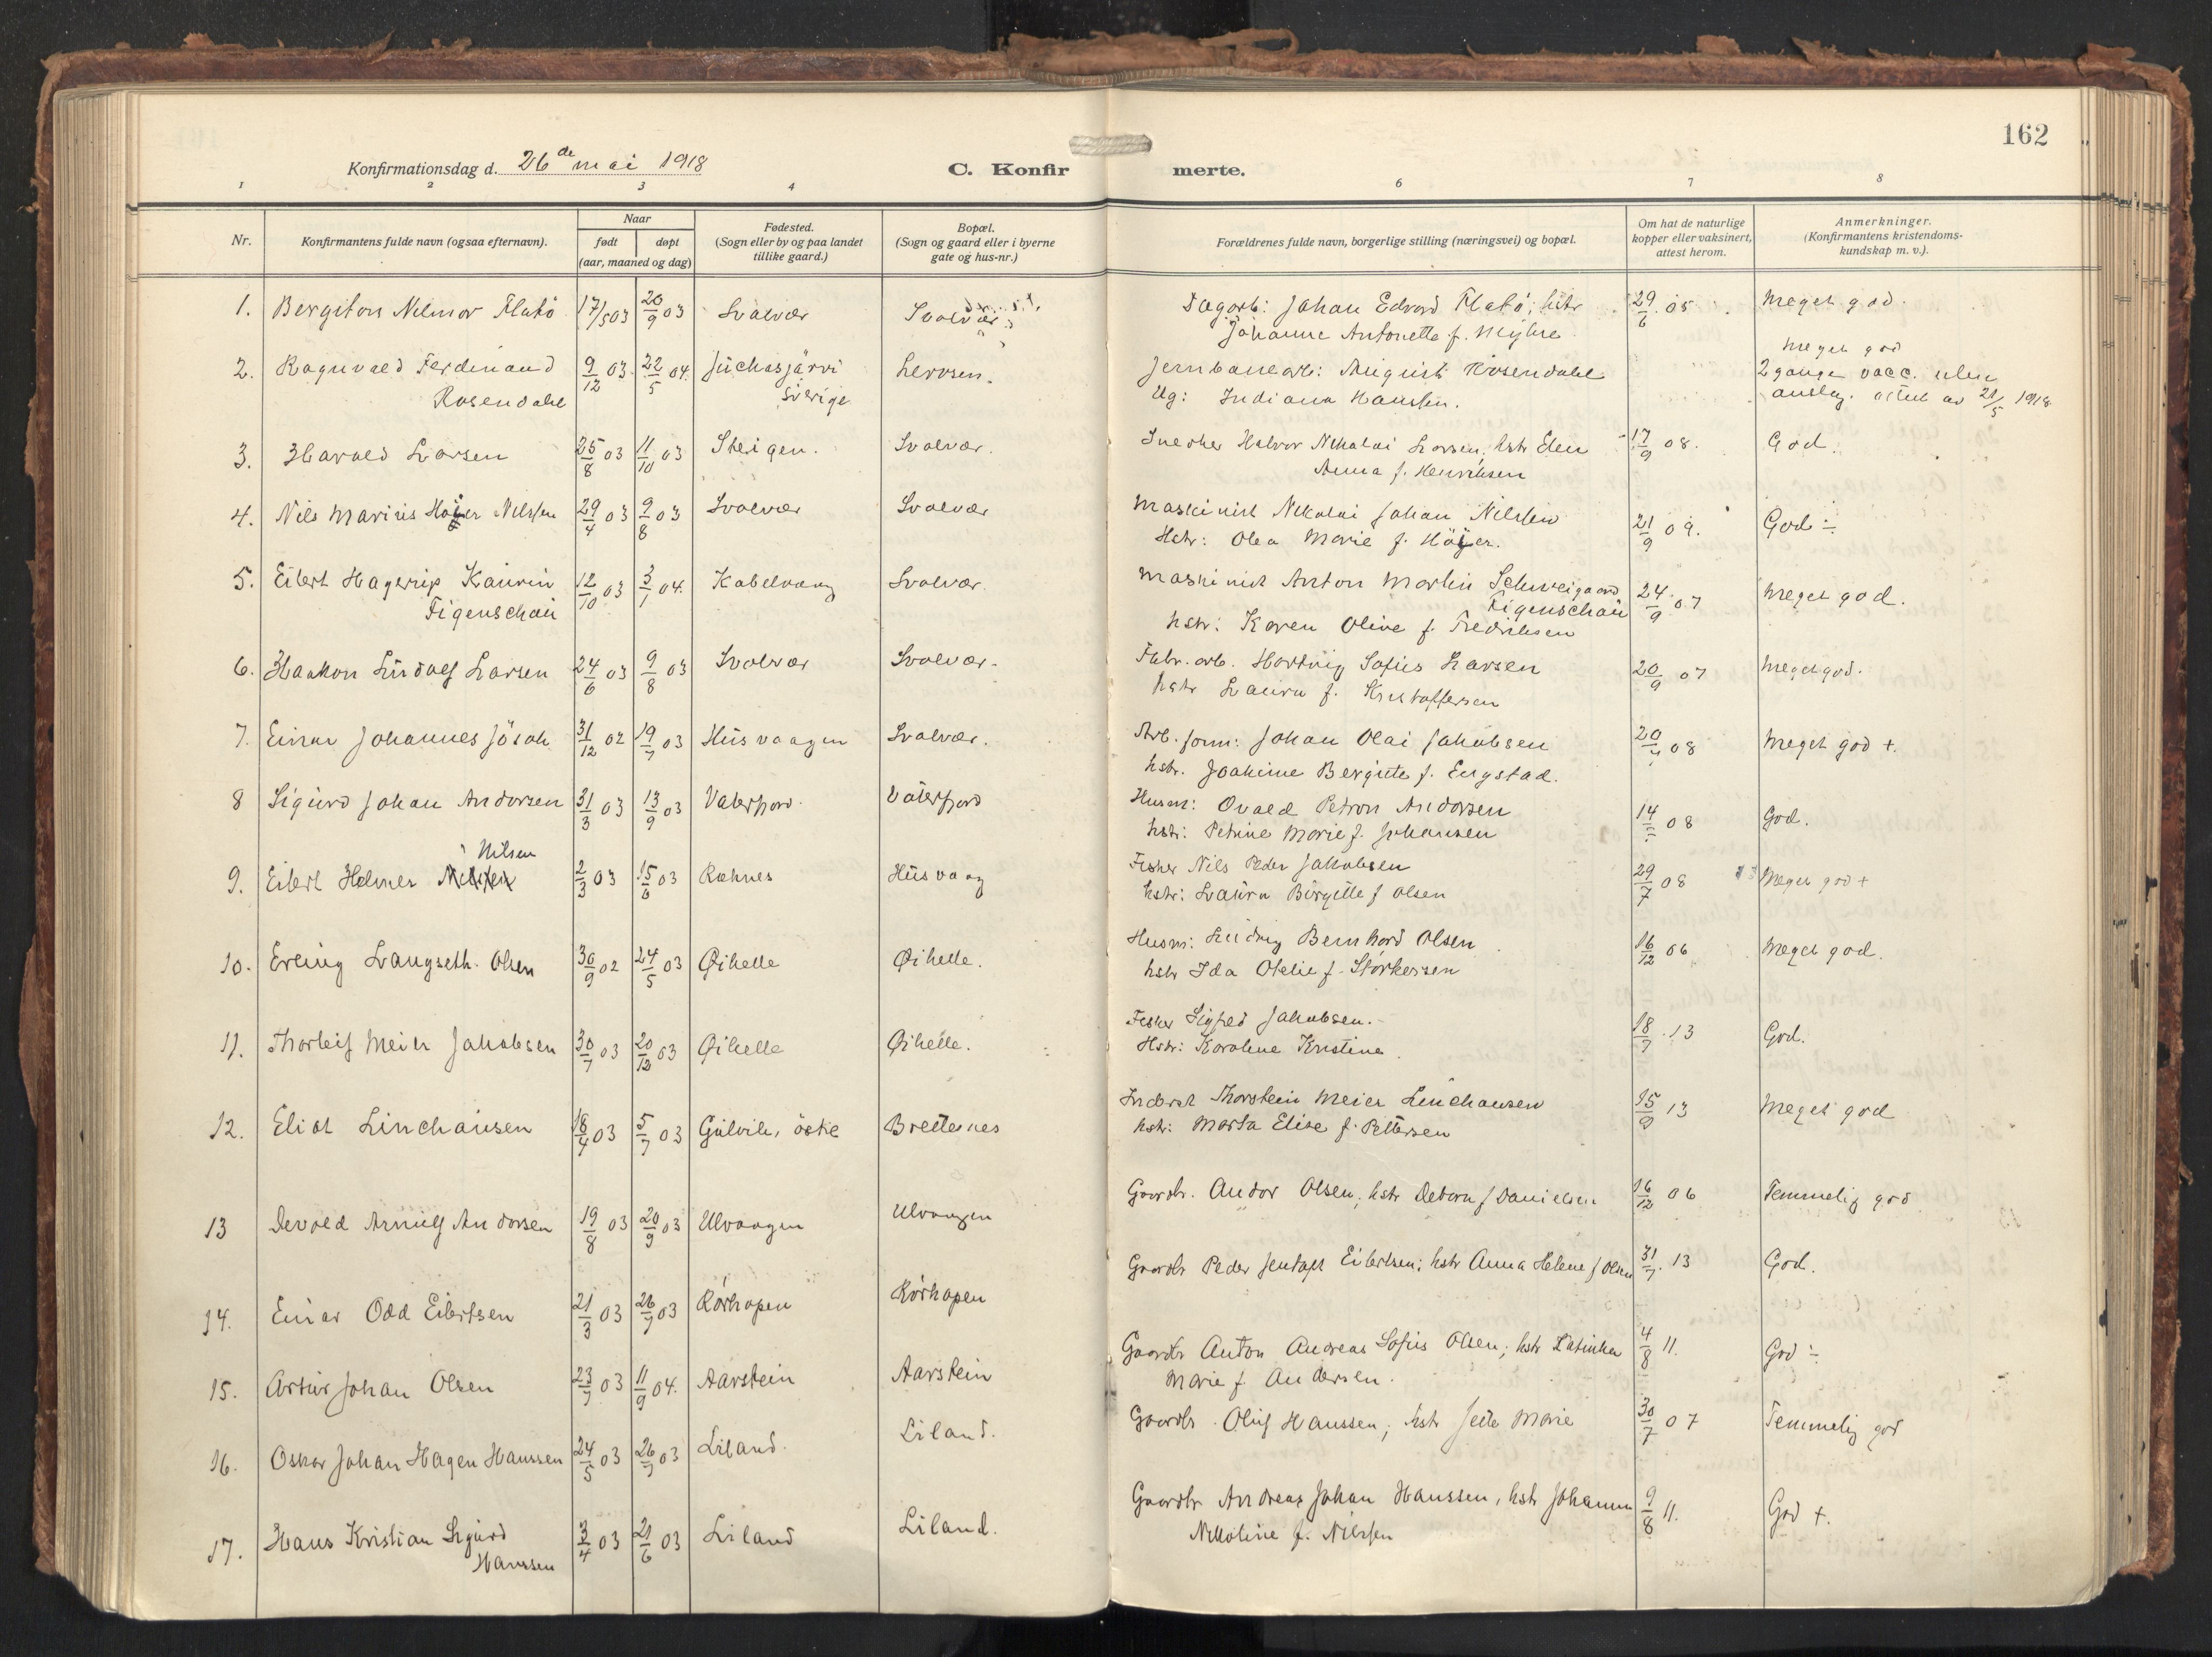 162
Konfirmationsdag d. 26de mai 1918
C. Konfirmerte.
1 2 3 4 6 7 8
Nr.
Konfirmantens fulde navn (ogsaa efternavn).
Naar
født
døpt
(aar, maaned og dag)
Fødested.
(Sogn eller by og paa landet
tillike gaard.)
Bopæl.
(Sogn og gaard eller i byerne
gate og hus-nr.)
Forældrenes fulde navn, borgerlige stilling (næringsvei) og bopæl.
Om hat de naturlige
kopper eller vaksinert,
attest herom.
Anmerkninger.
(Konfirmantens kristendoms-
kundskap m. v.).
1. Bergiton Nilmor Flatö 17/5 03 20/9 03 Svolvær Svolvær Dagarb: Johan Edvard Flatö; hstr 29/6 05 Meget god.
Johanne Antonette f. Myhre
2. Ragnvald Ferdinand 9/12 03 22/5 04. Juckasjärvi Lervosen. Jernbanearb: August Rosendahl Meget god
Rosendahl Sverige Ug: Indiana Hanssen. 2 gange vacc. uten
anslag. attest av 21/5 1918
3. Harald Larsen 25/8 03 11/10 03 Steigen. Svolvær. Snedker Halvor Nikolai Larsen, hstr Elen 17/9 08. God.
Anna f. Henriksen
4. Nils Marius Höier Nilssen 29/4 03 9/8 03 Svolvær Svolvær Maskinist Nikolai Johan Nilssen 21/9 09. God ÷
Hstr: Olea Marie f. Höier.
5. Eilert Hagerup Kaurin 12/10 03 3/1 04. Kabelvaag Svolvær. Maskinist Anton Martin Schweigaard 24/9 07 Meget god.
Figenschau Figenschau
hstr: Karen Olive f. Fredriksen
6. Haakon Lüdolf Larsen 24/6 03 9/8 03 Svolvær Svolvær. Fabr. arb. Hartvig Sofus Larsen 20/9 07 Meget god.
hstr Laura f. Kristoffersen
7. Einar Johannes Jösok 31/12 02 19/7 03 Husvaagen Svolvær. Arb. form: Johan Olai Jakobsen 20 08 Meget god +.
hstr. Joakime Bergitte f. Engstad.
8 Sigurd Johan Andorsen 31/3 03 13/9 03 Vaterfjord. Vaterfjord Husm: Ovald Petron Andorsen 14 08 God.
hstr: Petrine Marie f. Johansen
9. Eilert Helmer Nilsen 2/3 03 15/6 03 Raknes Husvaag Fisker Nils Peder Jakobsen 29/7 08 Meget god +
hstr: Laura Birgitte f Olsen
10. Erling Langseth. Olsen 30/9 02 24/5 03 Øihelle Øihelle. Husm: Ludvig Bernhard Olsen 16/12 06 Meget god.
hstr Ida Otelie f. Störkersen
11. Thorleif Meier Jakobsen 30/7 03 20/12 03 Øihelle Øihelle. Fisker Sigfred Jakobsen. 18/7 13 God.
Hstr: Karoline Kristine
12. Eliot Linchausen 18/4 03 5/7 03 Gulvik, östre Brettesnes Inderst Thorstein Meier Linchausen 15/9 13 Meget god
hstr: Marta Elise f. Pettersen
13 Devold Arnulf Andorsen 19/8 03 20/9 03 Ulvaagen Ulvaagen Gaardbr. Andor Olsen, hstr Debora f Danielsen 16/12 06 Temmelig god
14. Einar Odd Eilertsen 21/3 03 26/7 03 Rörhopen Rörhopen Gaardbr Peder Jentoft Eilertsen; hstr Anna Helene f Olsen 31/7. 13 God.
15. Artur Johan Olsen 23/7 03 11/9 04. Aarstein Aarstein Gaardbr Anton Andreas Sofus Olsen; hstr Katinka 4/8 11. God ÷
Marie f. Andersen.
16. Oskar Johan Hagen Hanssen 24/5 03 26/7 03 Liland. Liland. Gaardbr. Oluf Hanssen; hstr Jette Marie 30/7 07 Temmelig god
17. Hans Kristian Sigurd 3/4 03 21/6 03 Liland Liland. Gaardbr Andreas Johan Hanssen, hstr Johanna 9/8 11. God +.
Hanssen Nikoline f. Nilssen